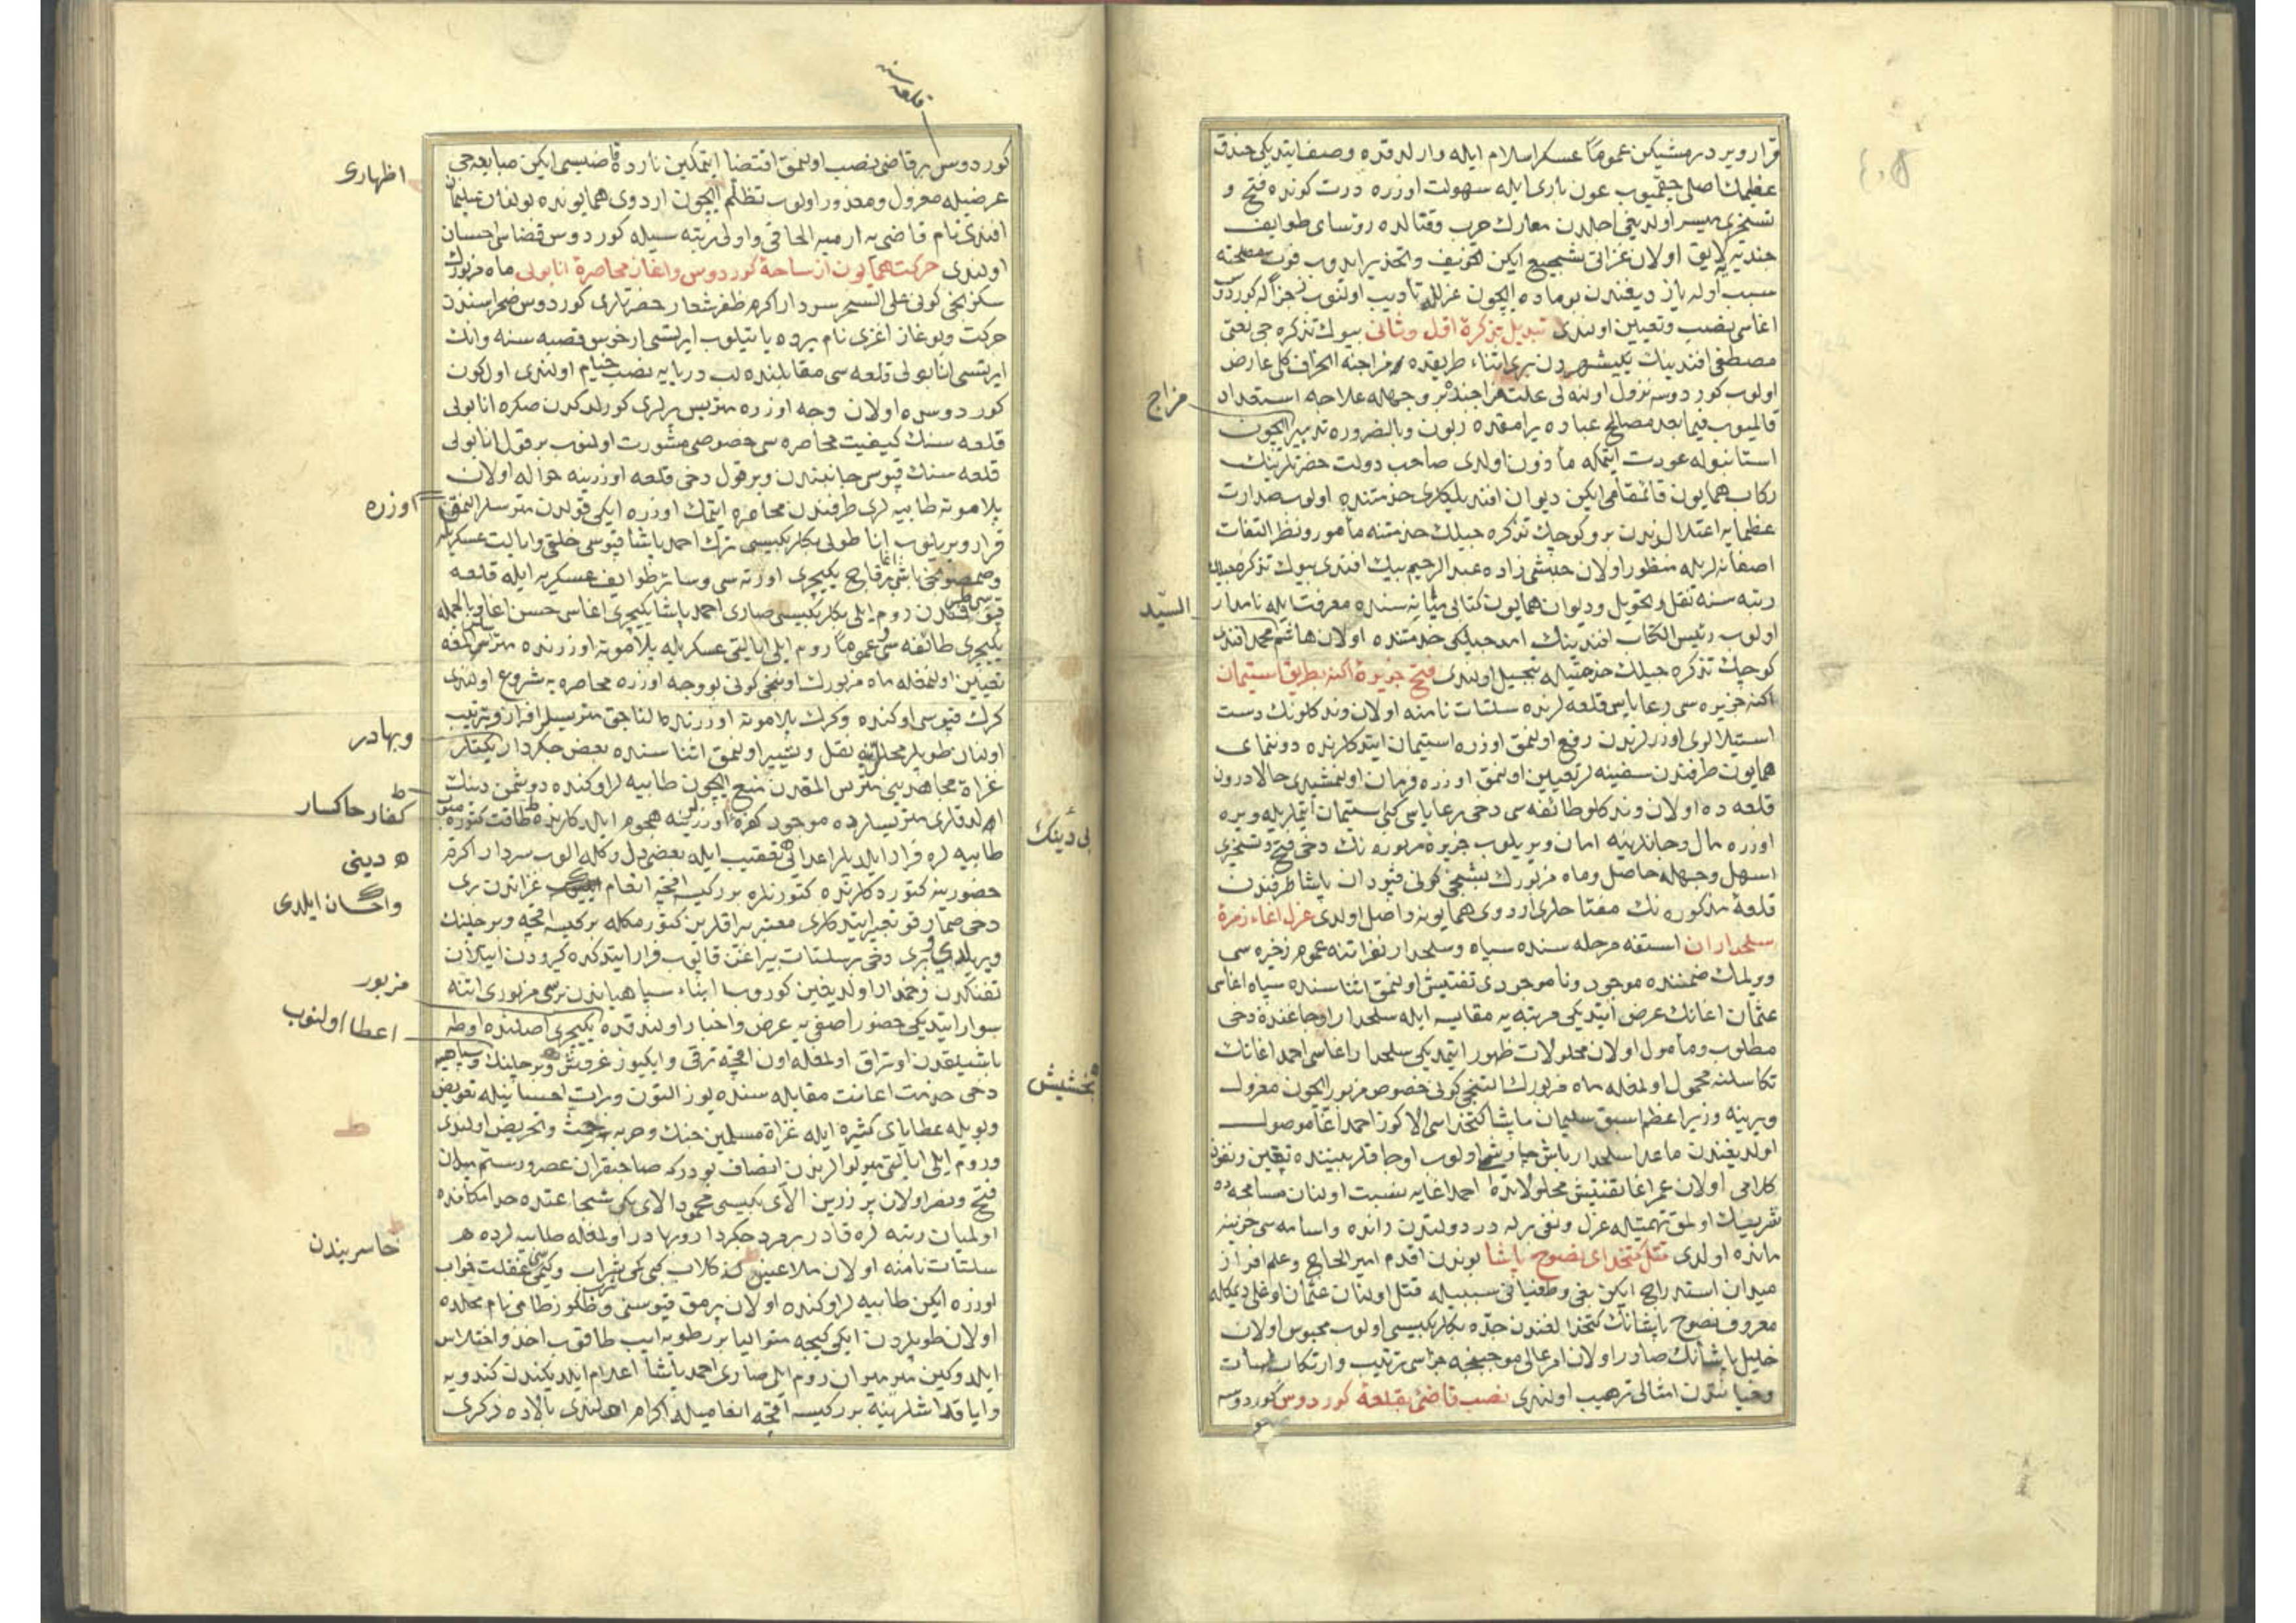 قرار ویرد درمشیکن عموماً عسکر اسلام ایله وارلدقده وصف ایتدیکی خندق
عظیمك اصلی چقمیوب عون باری ایله سهولت اوزره درت کونده فتح و
تسخیری میسر اولدیغی اجلدن معارك حرب وقتالده رؤسای طوایف
جندیه لایق اولان غزاتی تشجیع ایکن تخویف وتحذیر ایدوب فوت مصلحته
سبب اوله یازدیغندن بوماده ایچون عزلله تأدیب اولنوب
اغاسی نصب وتعیین اولندی تبدیل تذکرۀ اول وثانی بیوك تذکره جی بعنی
مصطفی افندینك یکیشهردن بری اثناء طریقده مزاجنه انحراف کلی عارض
اولوب کوردوسه نزول اولنه لی علت مزاجندن بر وجهله علاجه استعداد
قالمیوب فیما بعد مصالح عباده یرامقده زبون وبالضروره تدبیر ایچون
استانبوله عودت ایتمکه مأذون اولدی صاحب دولت حضرتلرینك
رکاب همایون قائمقامی ایکن دیوان افندیلیکلری خدمتنده اولوب صدارت
عظمایه اعتدالرندن برو کوچك تذکره جیلك خدمتنه مأمور ونظر التفات
اصفانه لریله منظور اولان حبشی زاده عبد الرحیم بیك افندی بیوك تذکره جیلك
رتبه سنه نقل وتحویل ودیوان همایون کتابی میانه سنده معرفت ایله نامدار
السید
اولوب رئیس الکتاب افندینك امدجیلکی خدمتنده اولان هاشم محمد افندی
کوچك تذکره جیلك خدمتیله تبجیل اولندی فتح جزیرۀ اکنه بطریق استیمان
اکنه جزیره سی رعایاسی قلعه لرنده سلتات نامنه اولان وندکلونك دست
استیلالری اوزرلرندن رفع اولنمق اوزره استیمان ایتدکلرنده دوننمای
همایون طرفندن سفینه لر تعیین اولنمق اوزره فرمان اولنمشیدی حالا درون
قلعه ده اولان وندکلو طائفه سی دخی رعایاسی کبی استیمان ایتملریله ویره
اوزره مال وجانلرینه امان ویریلوب جزیره مزبوره نك دخی فتح وتسخیری
اسهل وجهله حاصل وماه مزبورك بشنجی کونی قپودان پاشا طرفندن
قلعۀ مذکوره نك مفتاحلری اردوی همایونه واصل اولدی عزل اغاء زمرۀ
سلحداران استفه مرحله سنده سپاه وسلحدار نفراتنه عموم زخیره سی
ویرلمك ضمننده موجود ونا موجودی تفتیش اولنمق اثناسنده سپاه اغاسی
عثمان اغانك عرض ایتدیکی مرتبه یه مقایسه ایله سلحدار اوجاغنده دخی
مطلوب ومأمول اولان محلولات ظهور ایتمدیکی سلحدار اغاسی احمد اغانك
تکاسلنه محمول اولمغله ماه مزبورك التنجی کونی خصوص مزبور ایچون معزول
ویرینه وزیر اعظم اسبق سلیمان پاشا کتخداسی الاکوز احمد اغا موصول
اولدیغندن ماعدا سلحدار باش چاوشی اولوب اوجاقلر بیننده
کلامی اولان عمر اغا تفتیش محلولانده احمد اغایه نسبت اولنان مسامحه ده
شریك اولمق تهمتیله عزل ونفی برله در دولتدن رانده واسامه سی خزینه
مانده اولدی قتل کتخدای نصوح پاشا بوندن اقدم امیر الحاج وعلم افراز
میدان استدراج ایکن بغی وطغیانی سببیله قتل اولنان عثمان اوغلی دیمکله
معروف نصوح پاشانك کتخدالغندن جده بکلربکیسی اولوب محبوس اولان
خلیل پاشانك صادر اولان امر عالی موجبنجه جزاسی ترتیب وارتکاب
وخیانتدن امثالی ترهیب اولندی نصب قاضی بقلعۀ کوردوس کوردوسه
مزاج
کوردوس بر قاضی نصب اولنمق اقتضا ایتمکین نارده قاضیسی ایکن صبایعه جی
عرضیله معزول ومغدور اولوب تظلم ایچون اردوی همایونده بولنان سلیمان
افندی نام قاضی یه ارمیه الحاقی واولی رتبه سیله کوردوس قضاسی احسان
اولندی حرکت همایون از ساحۀ کوردوس واغاز محاصرۀ انابولی ماه مزبورك
سکزنجی کونی علی السحر سردار اکرم ظفر شعار حضرتلری کوردوس صحراسندن
حرکت وبوغاز اغزی نام یرده یاتیلوب ایرتسی ارخوس قصبه سنه وانك
ایرتسی انابولی قلعه سی مقابلنده لب دریایه نصب خیام اولندی اول کون
کوردوسده اولان وجه اوزره متریس یرلری کورلدکدن صکره انابولی
قلعه سنك کیفیت محاصره سی خصوصی مشورت اولنوب بر قول انابولی
قلعه سنك قپوسی جانبندن وبر قول دخی قلعه اوزرینه حواله اولان
پلاموته طابیه لری طرفندن محاصره ایتمك اوزره ایکی قولدن متریسلر النمق
قرار ویریلوب اناطولی بکلربکیسی ترك احمد پاشا قپوسی خلقی وایالت عسکریله
باشی یکیچری اورته سی وسائر طوایف عسکریه ایله قلعه
روم ایلی بکلربکیسی صاری احمد پاشا یکیچری اغاسی حسن اغا وبالجمله
یکیچری طائفه سی عموماً روم ایلی ایالتی عسکریله پلاموته اوزرنده متریس المغه
تعیین اولنمغله ماه مزبورك اوننجی کونی بو وجه اوزره محاصره یه شروع اولندی
کرك قپوسی اوکنده وکرك پلاموته اوزرنده النجق متریسلر افراز وترتیب
اولنان طوپلر محللرینه نقل وتسییر اولنمق اثناسنده بعض جکردار یکیتلر
غزاة مجاهدینی متریس المقدن منع ایچون طابیه لر اوکنده دوشمن دینك
متریسلرده موجود کفره اوزرلرینه هجوم ایلدکلرنده طاقت کتوره میوب
طابیه لره فرار ایلدیلر اعدایی تعقیب ایله بعض دل وکله الوب سردار اکرم
حضورینه کتوردکلرنده کتورنلره برر کیسه اقچه انعام غزاتدن بری
دخی تعبیر ایتدکلری معتبر کتورمکله بر کیسه اقچه وبر چلنك
ویریلدی وبری دخی بر سلتات بیراغن قاپوب فرار ایتدکده کیرودن اتیلان
تفنکدن زخمدار اولدیغین کوروب ابناء سپاهیاندن بریسی مزبوری اتنه
سوار ایتدیکی حضور اصفی یه عرض واخبار اولندقده یکیچری اصلنده اوطه
باشیلقدن اوتراق اولمغله اون اقچه ترقی وایکیوز غروش وبر چلنك وسپاهی یه
دخی خدمت اعانت مقابله سنده یوز التون وبرات احسانیله تعویض
وبویله عطایای کثیره ایله غزاة مسلمین جنك وحربه حث وتحریض اولندی
وروم ایلی ایالتی میرلوالرندن انصاف بودرکه صاحبقران عصر ورستم میدان
فتح ونصر اولان پرزرین الای بکیسی محمود الای بکی شجاعتده حد امکانده
اولمیان رتبه لره قادر بر مرد جکردار وبهادر اولمغله طابیه لرده
سلتات نامنه اولان ملاعین کلاب کبی کمی شراب وکیمی غفلت خواب
اوزره ایکن طابیه لر اوکنده اولان پرمق قپوسنی وطاکوز طامی نام محلده
اولان طوپلردن ایکی کیجه متوالیا برر طوپه ایپ طاقوب اخذ واختلاس
ایلدوکین میر میران روم ایلی صاری احمد پاشا اعلام ایلدیکندن کندویه
وایاقداشلرینه برر کیسه اقچه انعامیله اکرام اولندی بالاده ذکری
قلعه سنه
اظهاری
اوزره
وبهادر
کفار خاکسار
دینی
واحسان ایلدی
مزبور
اعطا اولنوب
خاسریندن
بی دینك
بخشیش